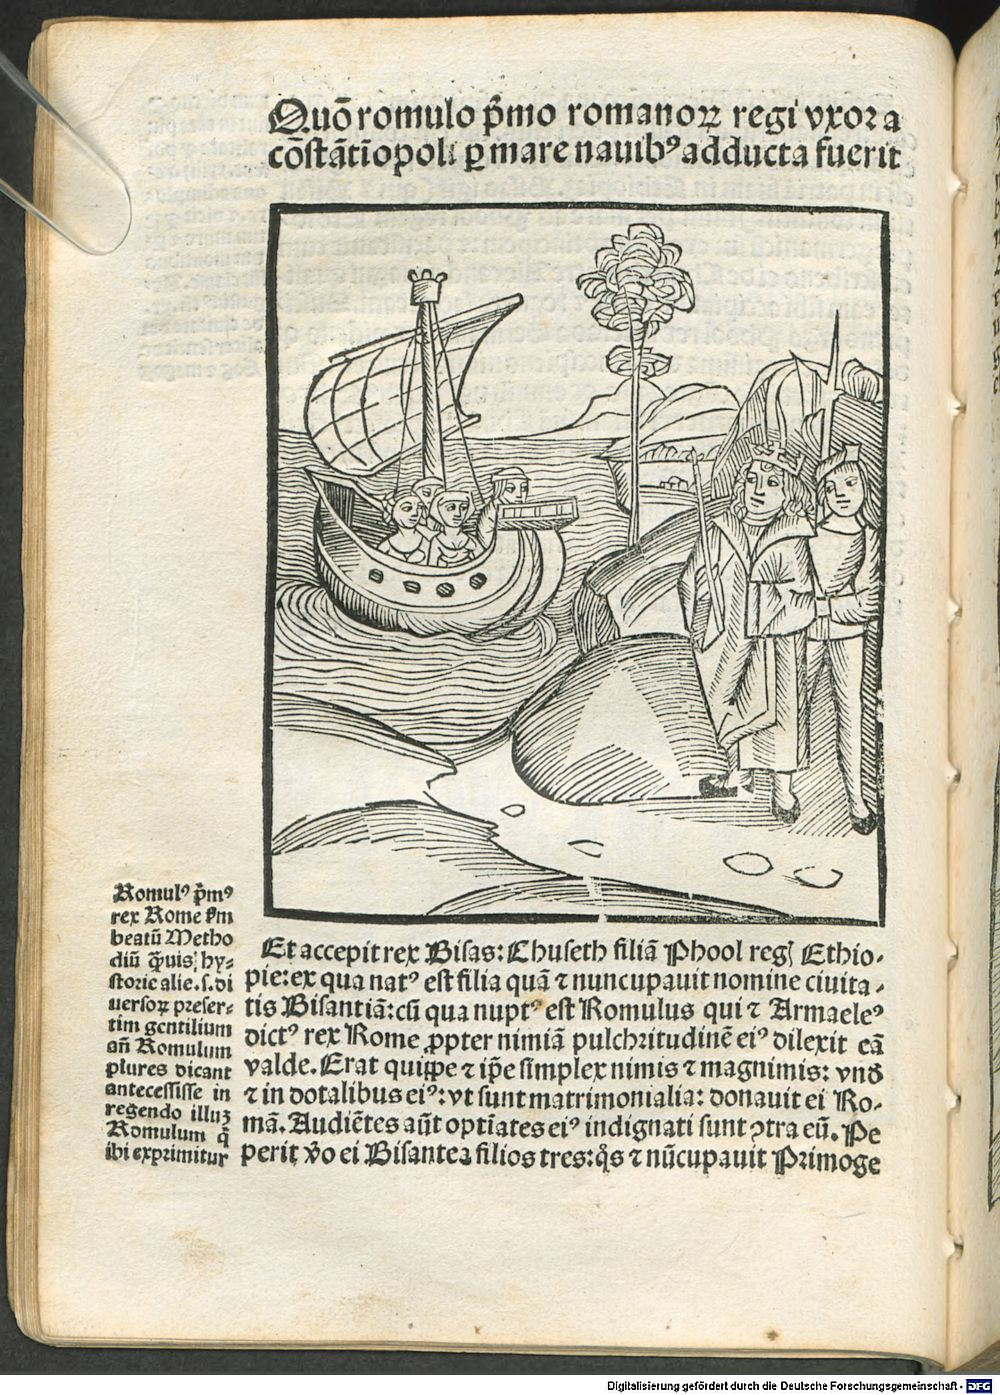 Quō romulo p̄mo romanoꝝ regi vxor a
cōstātiopoli ꝑ mare nauibꝰ adducta fuerit
Romulꝰ p̄mꝰ
rex Rome ẜm
beatū Metho
diū q̄uis hy⸗
storie alie .s. di
uersoꝝ preser⸗
tim gentilium
an̄ Romulum
plures dicant
antecessisse in
regendo illuꝫ
Romulum q̄
ibi exprimitur
Et accepit rex Bisas: Chuseth filiā Phool reg Ethio⸗
pie: ex qua natꝰ est filia quā ⁊ nuncupauit nomine ciuita⸗
tis Bisantiā: cū qua nuptꝰ est Romulus qui ⁊ Armaeleꝰ
dictꝰ rex Rome ꝓpter nimiā pulchritudinē eiꝰ dilexit eā
valde. Erat quippe ⁊ ip̄e simplex nimis ⁊ magnimis: vnd̄
⁊ in dotalibus eiꝰ: vt sunt matrimonialia: donauit ei Ro⸗
mā. Audiētes aūt optīates eiꝰ indignati sunt ꝯtra eū. Pe
perit v̄o ei Bisantea filios tres: q̄s ⁊ nūcupauit Primoge
Digitalisierung gefördert durch die Deutsche Forschungsgemeinschaft - DFG